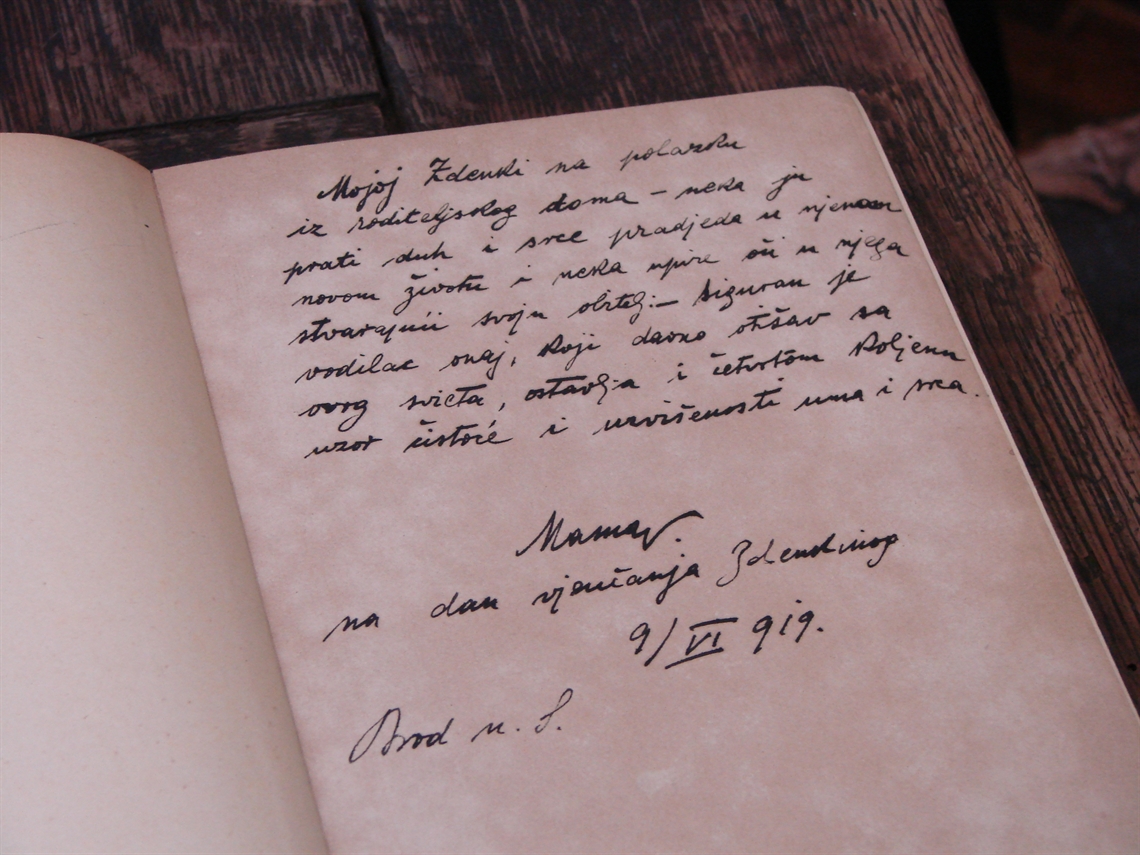 Mojoj Zdenki na polazku
iz roditeljskog doma – neka ju
prati duh i srce pradjeda u njenom
novom životu i neka upire oči u njega
stvarajući svoju obitelj. – Siguran je
vodilac onaj, koji davno otišav sa
ovog svieta, ostavlja i četvrtom koljenu
uzor čistoće i uzvišenosti uma i srca.
Mama
na dan vjenčanja Zdenkinog
9/VI 919.
Brod n. S.